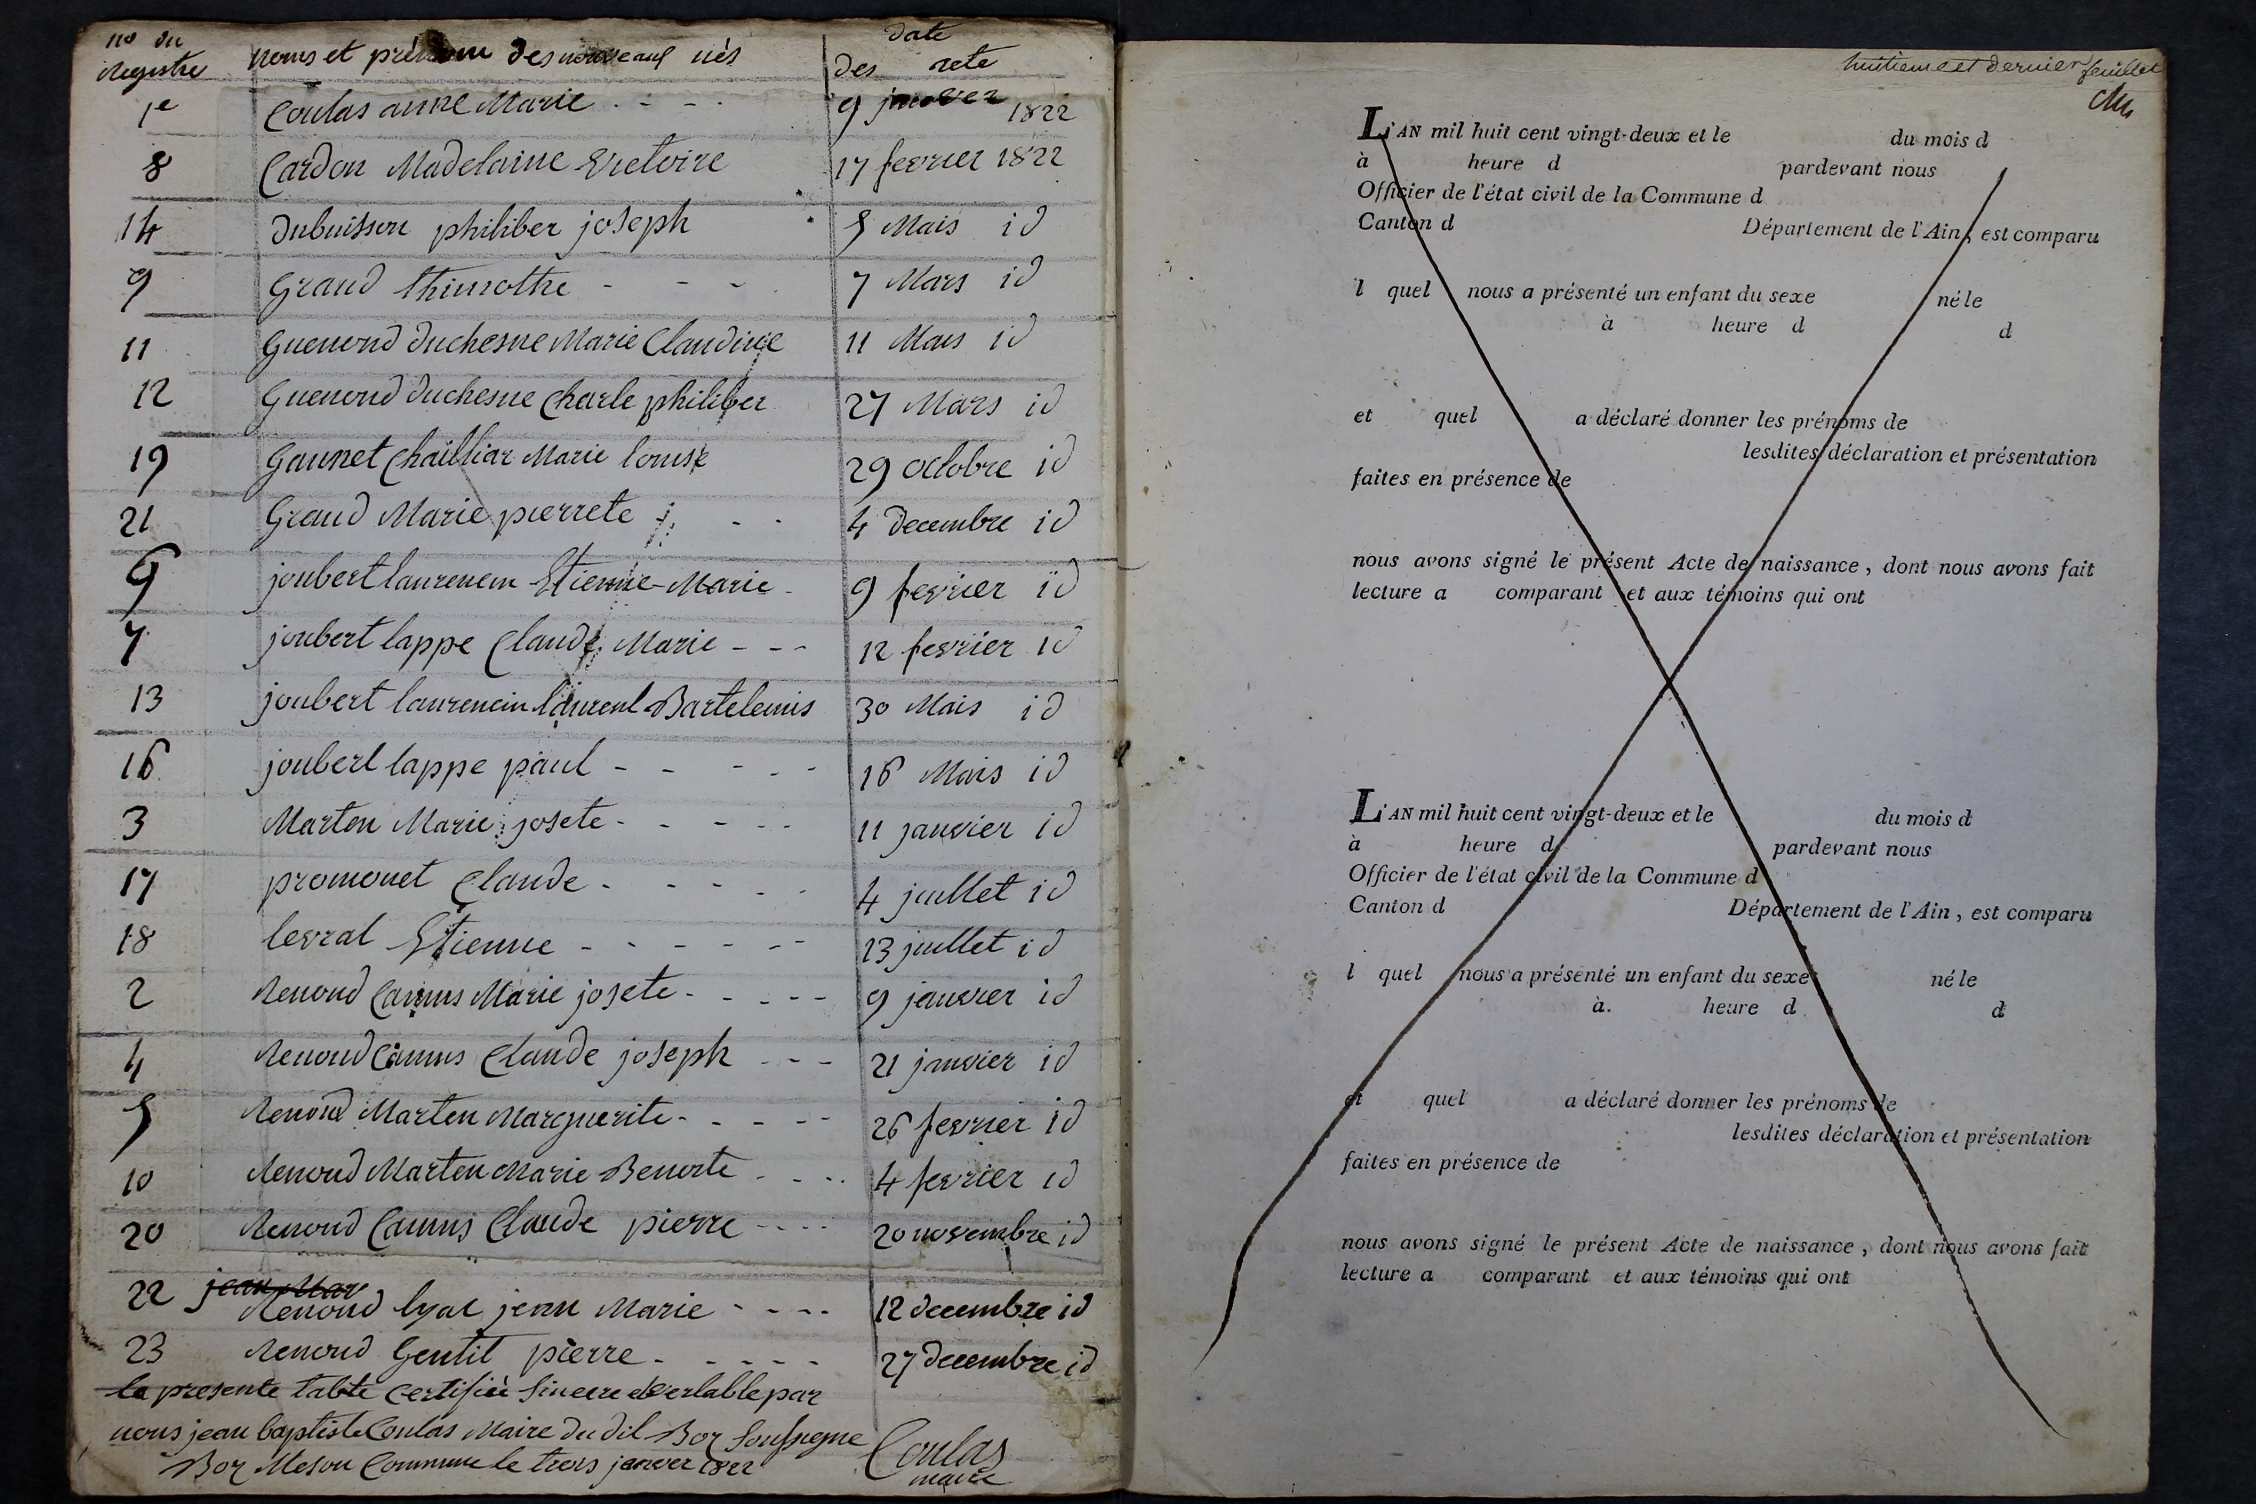 no du Registre noms et prénom des nouveaux nés date des acte
1e Coulas anne Marie 9 janvier 1822
8 Cardon Madelaine Victoire 17 fevrier 1822
14 Dubuisson philiber joseph 5 Mais id
9 Grand thimothe 7 Mars id
11 Guenond duchesne Marie Claudine 11 Mars id
12 Guenond duchesne Charle philiber 27 Mars id
19 Gaunet Chailliar Marie louise 29 octobre id
21 Grand Marie pierrete 4 decembre id
6 joubert laurencin Etienne Marie 9 fevrier id
7 joubert lappe Claude Marie 12 fevrier id
13 joubert laurencin laurent Bartelemis 30 Mais id
16 joubert lappe paul 16 Mais id
3 Marten Marie josete 11 janvier id
17 promonet Claude 4 juillet id
18 levrat Etienne 13 juillet id
2 Renond Camus Marie josete 9 janvier id
4 Renond Camus Claude joseph 21 janvier id
5 Renond Marten Marguerite 26 fevrier id
10 Renond Marten Marie Benoite 4 fevrier id
20 Renond Camus Claude pierre 20 novembre id
jean Mar
22 Renond lyat jean Marie 12 decembre id
23 Renond Gentil pierre 27 decembre id
la presente table certifiée sincere et veritable par
nous jean baptiste Coulas Maire du dit Bor soussigne
Bor Meson Commune le trois janvier 1822
Coulas
maire
huitieme et dernier feuillet
L'AN mil huit cent vingt-deux et le du mois d
à heure d pardevant nous
Officier de l'état civil de la Commune d
Canton d Département de l'Ain, est comparu
l quel nous a présenté un enfant du sexe né le
à heure d d
et quel a déclaré donner les prénoms de
lesdites déclaration et présentation
faites en présence de
nous avons signé le présent Acte de naissance, dont nous avons fait
lecture a comparant et aux témoins qui ont
L'AN mil huit cent vingt-deux et le du mois d
à heure d pardevant nous
Officier de l'état civil de la Commune d
Canton d Département de l'Ain, est comparu
l quel nous a présenté un enfant du sexe né le
à heure d d
et quel a déclaré donner les prénoms de
lesdites déclaration et présentation
faites en présence de
nous avons signé le présent Acte de naissance, dont nous avons fait
lecture a comparant et aux témoins qui ont